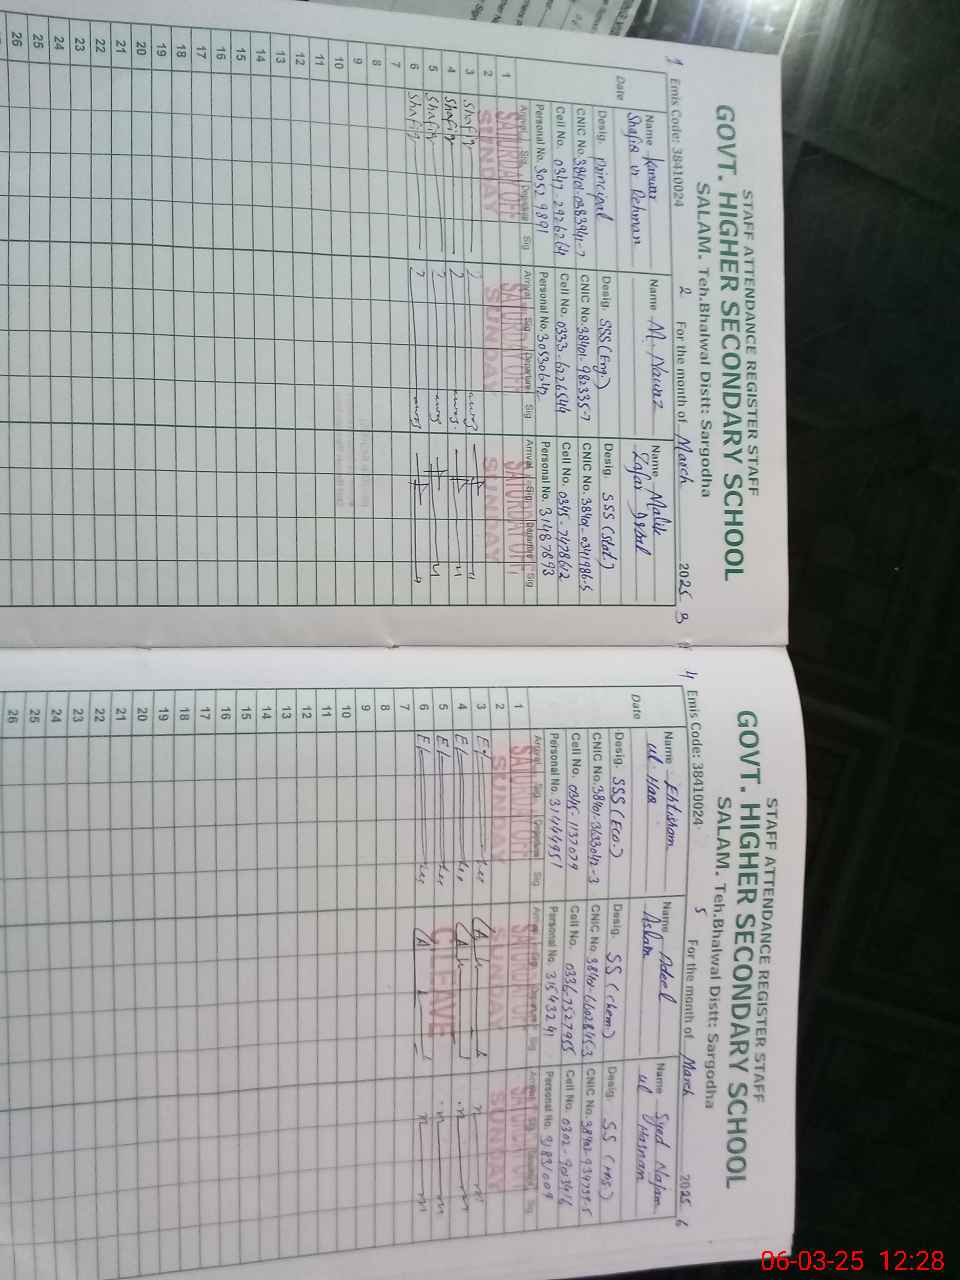 STAFF ATTENDANCE REGISTER STAFF
GOVT. HIGHER SECONDARY SCHOOL
SALAM. Teh.Bhalwal Distt: Sargodha
1 Emis Code: 38410024 2 For the month of March 2025 3
Date
Name
Shafiq ur Rehman
Desig. Principal
CNIC No. 38401-0383941-7
Cell No. 0347-2926264
Personal No. 30529891
Arrival Sig. Departure Sig
Name M. Nawaz
Desig. SSS (Eng.)
Cell No. 0333-6226544
Personal No. 30530642
Arrival Sig. Departure Sig
Name Malik
Zafar Iqbal
Desig. SSS (Stat.)
CNIC No. 38401-0341986-5
Cell No. 0345-7478612
Personal No. 31487893
Arrival Sig. Departure Sig
1 SATURDAY OFF SATURDAY OFF SATURDAY OFF
2 SUNDAY SUNDAY SUNDAY
3 Shafiq
4 Shafiq
5 Shafiq
6 Shafiq
7
8
9
10
11
12
13
14
15
16
17
18
19
20
21
22
23
24
25
26
STAFF ATTENDANCE REGISTER STAFF
GOVT. HIGHER SECONDARY SCHOOL
SALAM. Teh.Bhalwal Distt: Sargodha
4 Emis Code: 38410024 5 For the month of March 2025 6
Date
Name Ehtisham
ul Haq
Desig. SSS (Eco.)
CNIC No. 38401-3633042-3
Cell No. 0345-1137079
Personal No. 31444951
Arrival Sig. Departure Sig
Name Adeel
Aslam
Desig. SS (Chem)
CNIC No. 38401-6602845-3
Cell No. 0336-7527955
Personal No. 31543241
Arrival Sig. Departure Sig
Name Syed Najam
ul Hasnain
Desig. SS
Personal No. 31831009
Arrival Sig. Departure Sig
1 SATURDAY OFF SATURDAY OFF SATURDAY OFF
2 SUNDAY SUNDAY SUNDAY
3
4
5 C.LEAVE
6
7
8
9
10
11
12
13
14
15
16
17
18
19
20
21
22
23
24
25
26
06-03-25 12:28